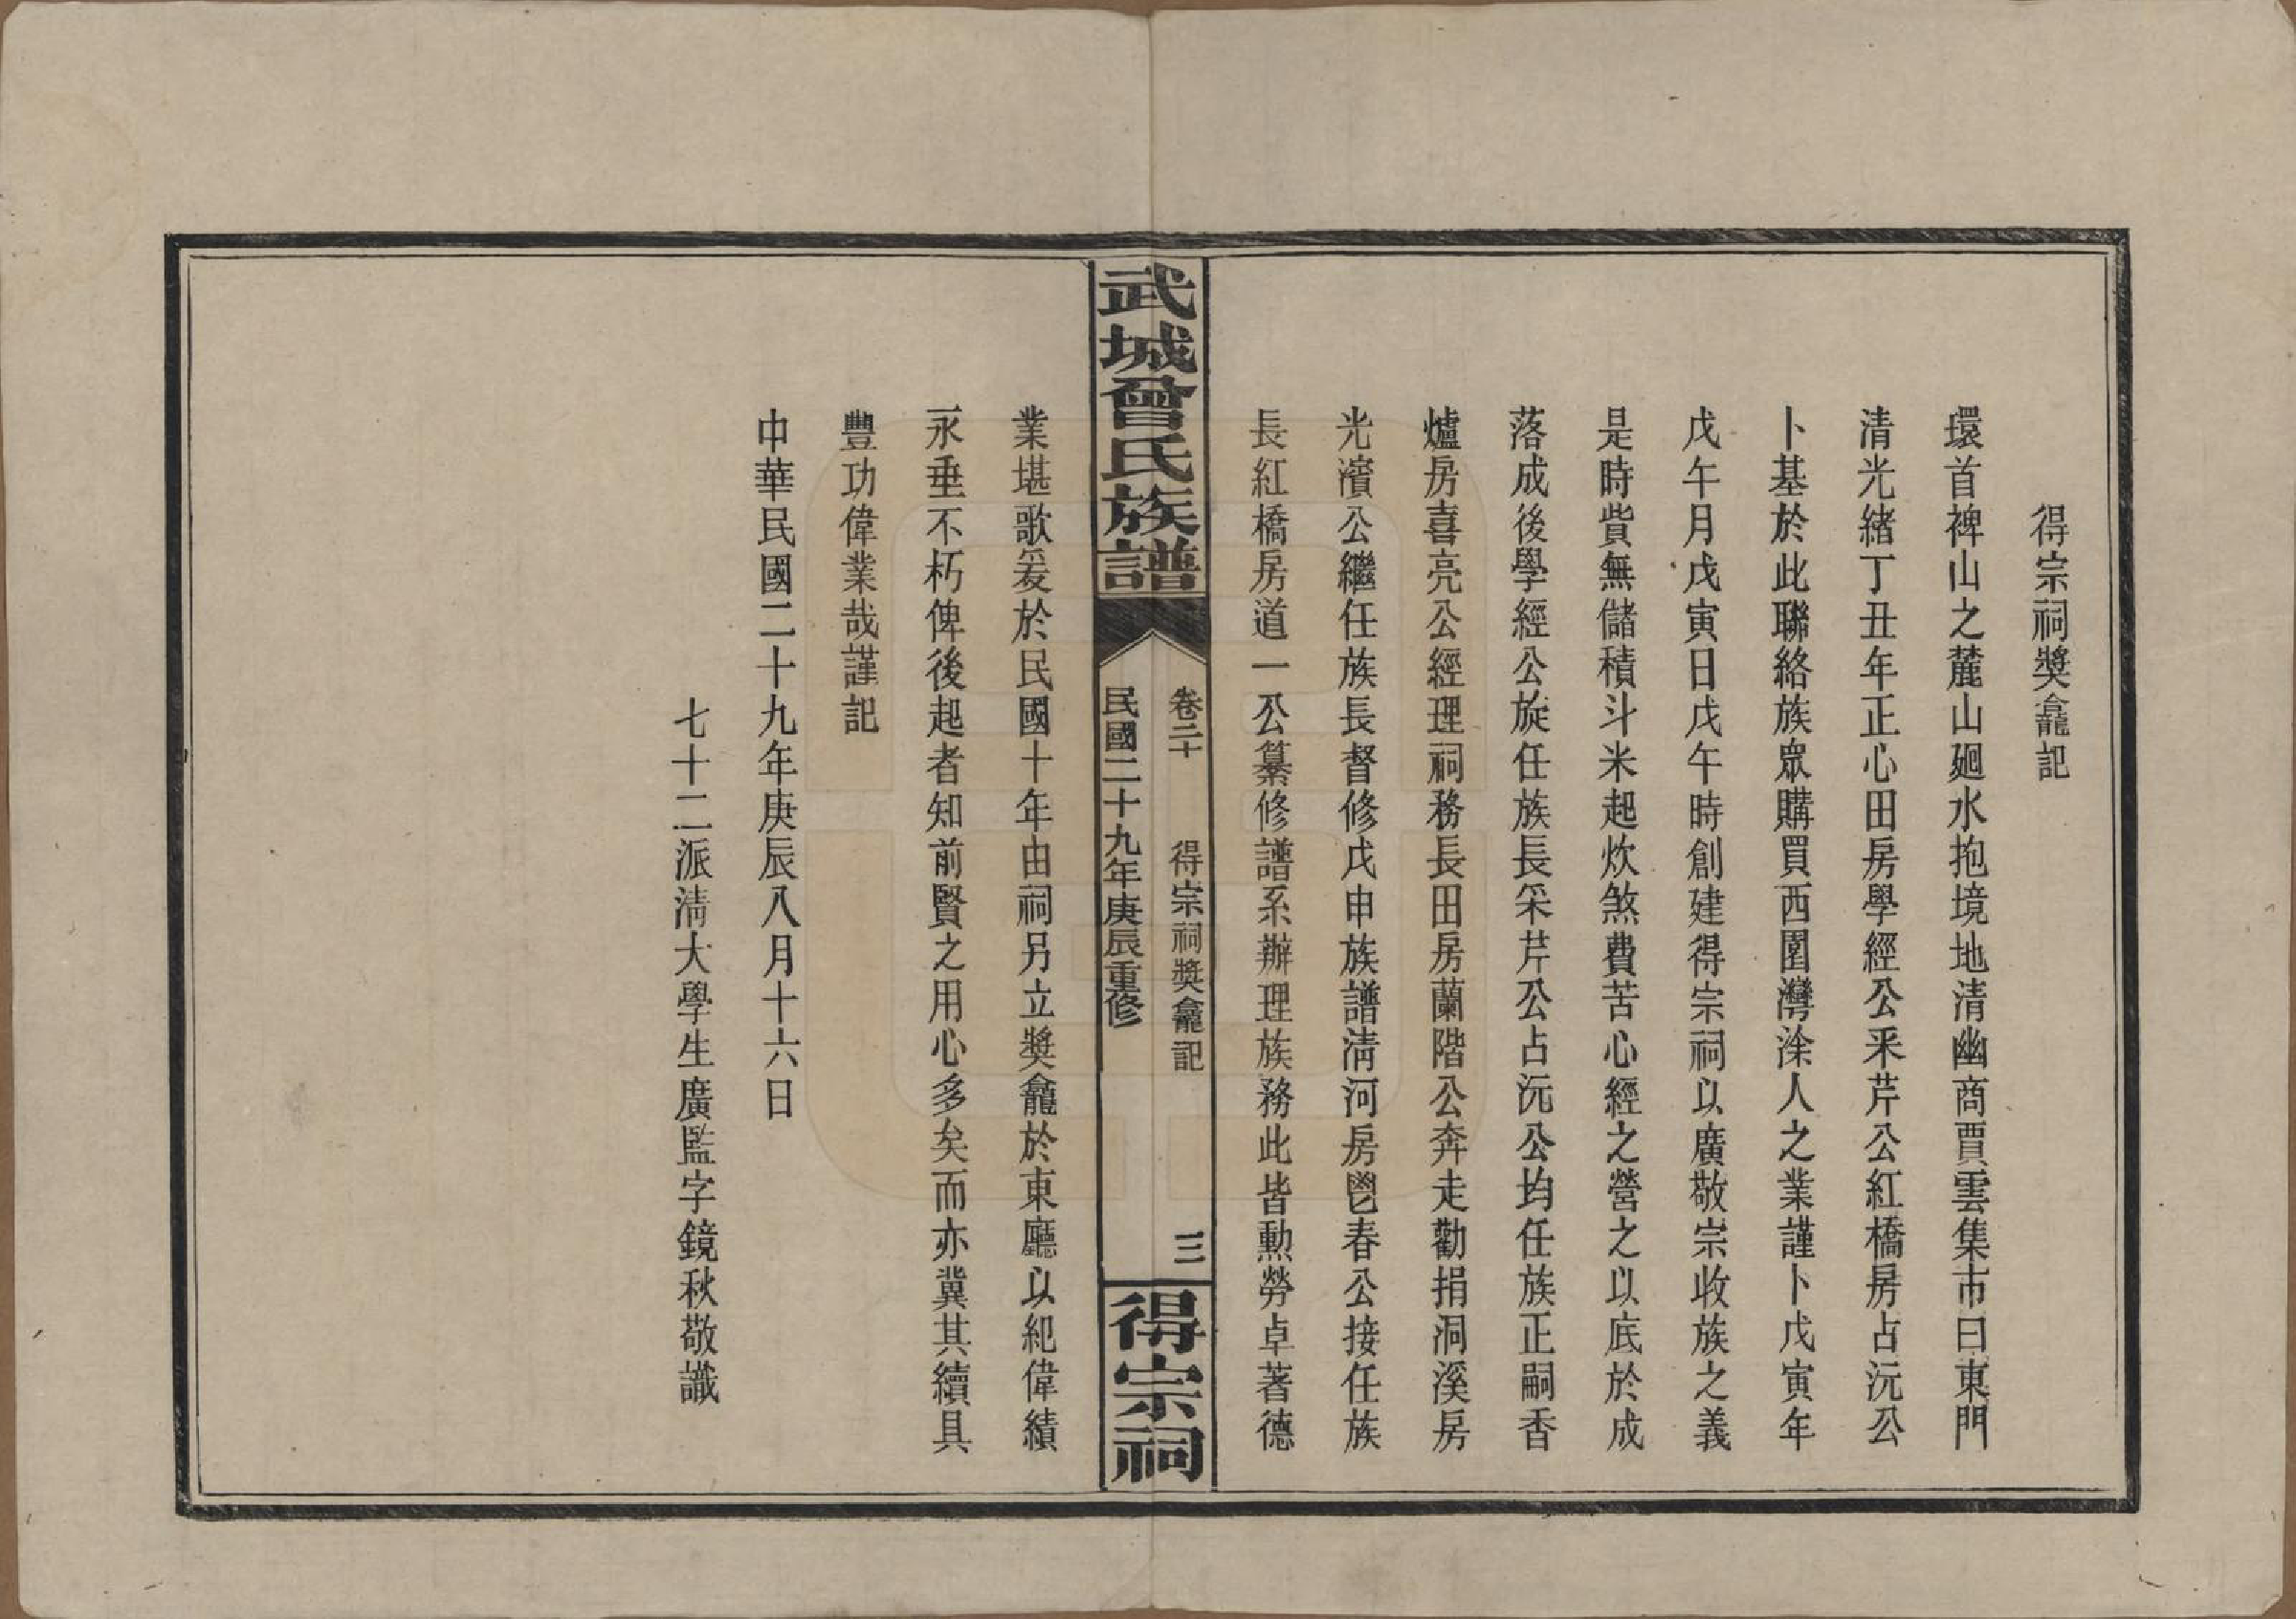 得宗祠獎龕記
環首裨山之麓山廻水抱境地清幽商賈雲集市曰東門
清光緒丁丑年正心田房學經公釆芹公紅橋房占沅公
卜基於此聯絡族眾購買西園灣涂人之業謹卜戊寅年
戊午月戊寅日戊午時創建得宗祠以廣敬宗收族之義
是時貲無儲積斗米起炊煞費苦心經之營之以底於成
落成後學經公旋任族長采芹公占沅公均任族正嗣香
爐房喜亮公經理祠務長田房蘭階公奔走勸捐洞溪房
光濱公繼任族長督修戊申族譜清河房鬯春公接任族
長紅橋房道一公纂修譜系辦理族務此皆勳勞卓著德
武城曾氏族譜
卷二十 得宗祠獎龕記 三
民國二十九年庚辰重修
得宗祠
業堪歌爰於民國十年由祠另立獎龕於東廳以紀偉績
永垂不朽俾後起者知前賢之用心多矣而亦冀其續具
豐功偉業哉謹記
中華民國二十九年庚辰八月十六日
七十二派清大學生廣監字鏡秋敬識